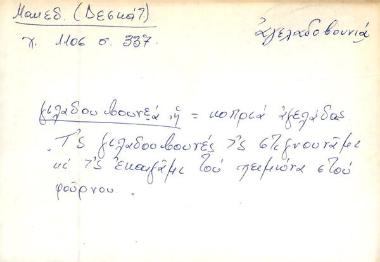 Μακεδ. (Δεσκάτ)
χ. 1105 σ. 337.
ἀγελαδοβουνιά
γιλαδουβουνιά ἡ = κοπριά ἀγελάδας
Τ'ς γιλαδουβουνές τ'ς στεγνουνάμι
κι τ'ς ἐκαιγάμι τοὺ χειμώνα στοὺ
φούρνου.